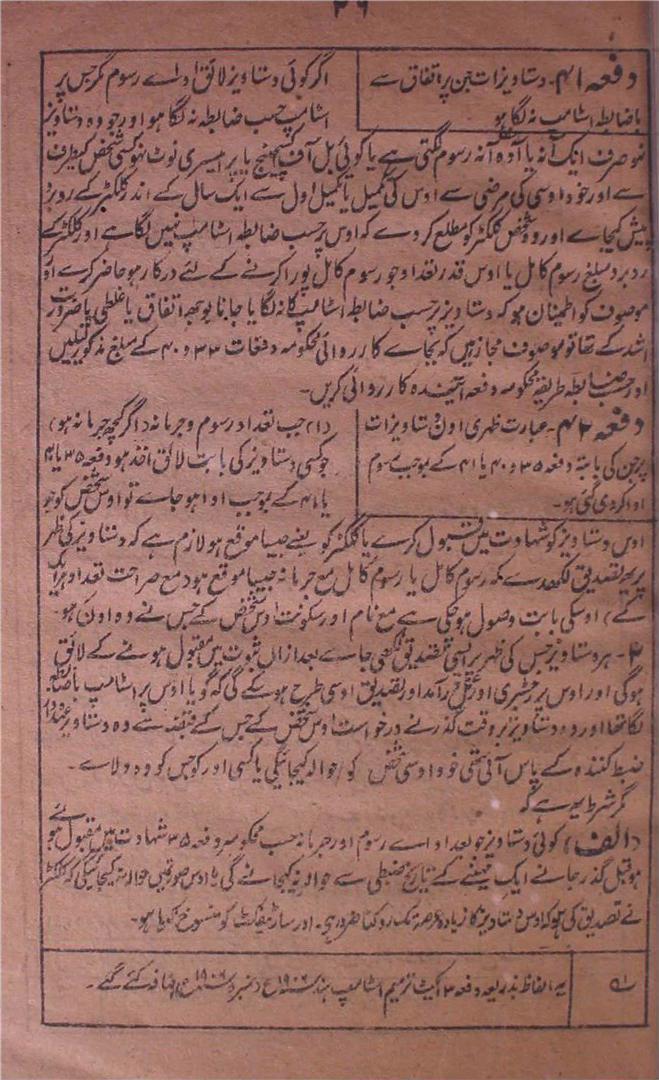 ۳۶
دفعہ ۴۱۔ دستاویزات جن پر اتفاق سے
باضابطہ اسٹامپ نہ لگا ہو
اگر کوئی دستاویز لائق اداے رسوم مگر جس پر
اسٹامپ حسب ضابطہ نہ لگا ہو اور جو وہ دستاویز
نہو صرف ایک آنہ یا آدہ آنہ رسوم لگتی ہے یا کوئی بل آف کسچینج یا پرامیسری نوٹ نہو کسی شخص کیطرف
سے اور خود اوسی کی مرضی سے اوس کی تکمیل یا تکمیل اول سے ایک سال کے اندر کلکٹر کے روبرو
پیش کیجاے اور وہ شخص کلکٹر کو مطلع کر دے کہ اوس پر حسب ضابطہ اسٹامپ نہیں لگا ہے اور کلکٹر کے
روبرو مبلغ رسوم کامل یا اوس قدر تعداد جو رسوم کامل پورا کرنے کے لئے درکار ہو حاضر کرے اور
موصوف کو اطمینان ہو کہ دستاویز پر حسب ضابطہ اسٹامپ کا نہ لگایا جانا بوجھ اتفاق یا غلطی یا ضرورت
اشد کے تھا تو موصوف مجاز ہیں کہ بجاے کارروائی محکومہ دفعات ۳۳ و ۴۰ کے مبلغ مذکور لیلیں
اور حسب ضابطہ طریقہ محکومہ دفعہ آیندہ کارروائی کریں۔
دفعہ ۴۲۔ عبارت ظہری اون دستاویزات
پر جن کی بابتہ دفعہ ۳۵ و ۴۰ یا ۴۱ کے بموجب رسوم
ادا کر دی گئی ہو۔
(۱) جب تعداد رسوم و جرمانہ (اگر کچھ جرمانہ ہو)
جو کسی دستاویز کی بابت لائق اخذ ہو دفعہ ۳۵ یا ۴۰
یا ۴۱ کے بموجب ادا ہو جاے تو اوس شخص کو جو
اوس دستاویز کو شہادت میں قبول کرے یا کلکٹر کو یعنے جیسا موقع ہو لازم ہے کہ دستاویز کی ظہر
پر یہ تصدیق لکھدے کہ رسوم کامل یا رسوم کامل مع جرمانہ (جیسا موقع ہو) مع صراحت تعداد ہر ایک
کے) اوسکی بابت وصول ہو چکی ہے مع نام اور سکونت اوس شخص کے جس نے وہ اون کی ہو۔
۲۔ ہر دستاویز جس کی ظہر پر ایسی تصدیق لکھی جاے بعد ازاں ثبوت میں مقبول ہونے کے لائق
ہوگی اور اوس پر رجسٹری اور عمل درآمد اور تصدیق اوسی طرح ہو سکے گی کہ گویا اوس پر اسٹامپ باضابطہ
لگا تھا اور وہ دستاویز بر وقت گذرنے درخواست اوس شخص کے جس کے قبضہ سے وہ دستاویز عہدہ دار
ضبط کنندہ کے پاس آئی تھی خود اوسی شخص کو حوالہ کیجائیگی یا کسی اور کو جس کو وہ دلاے۔
مگر شرط یہ ہے کہ
(الف) کوئی دستاویز جو بعد اداے رسوم اور جرمانہ حسب محکومہ دفعہ ۳۵ شہادت میں مقبول ہوئے
ہو قبل گذر جانے ایک مہینے کے تاریخ ضبطی سے حوالہ نہ کیجانے گی یا اوس صورتمیں حوالہ نہ کیجائیگی کہ کلکٹر
نے تصدیق کی ہو کہ اوس دستاویز کا زیادہ عرصہ تک روکنا ضرور ہے۔ اور سارٹیفکٹ کو منسوخ نکیا ہو۔
یہ الفاظ بذریعہ دفعہ ۳ ایکٹ ترمیم اسٹامپ ہند سنہ ۱۹۰۶ع (نمبر ۵ سنہ ۱۹۰۶ع) اضافہ کئے گئے۔